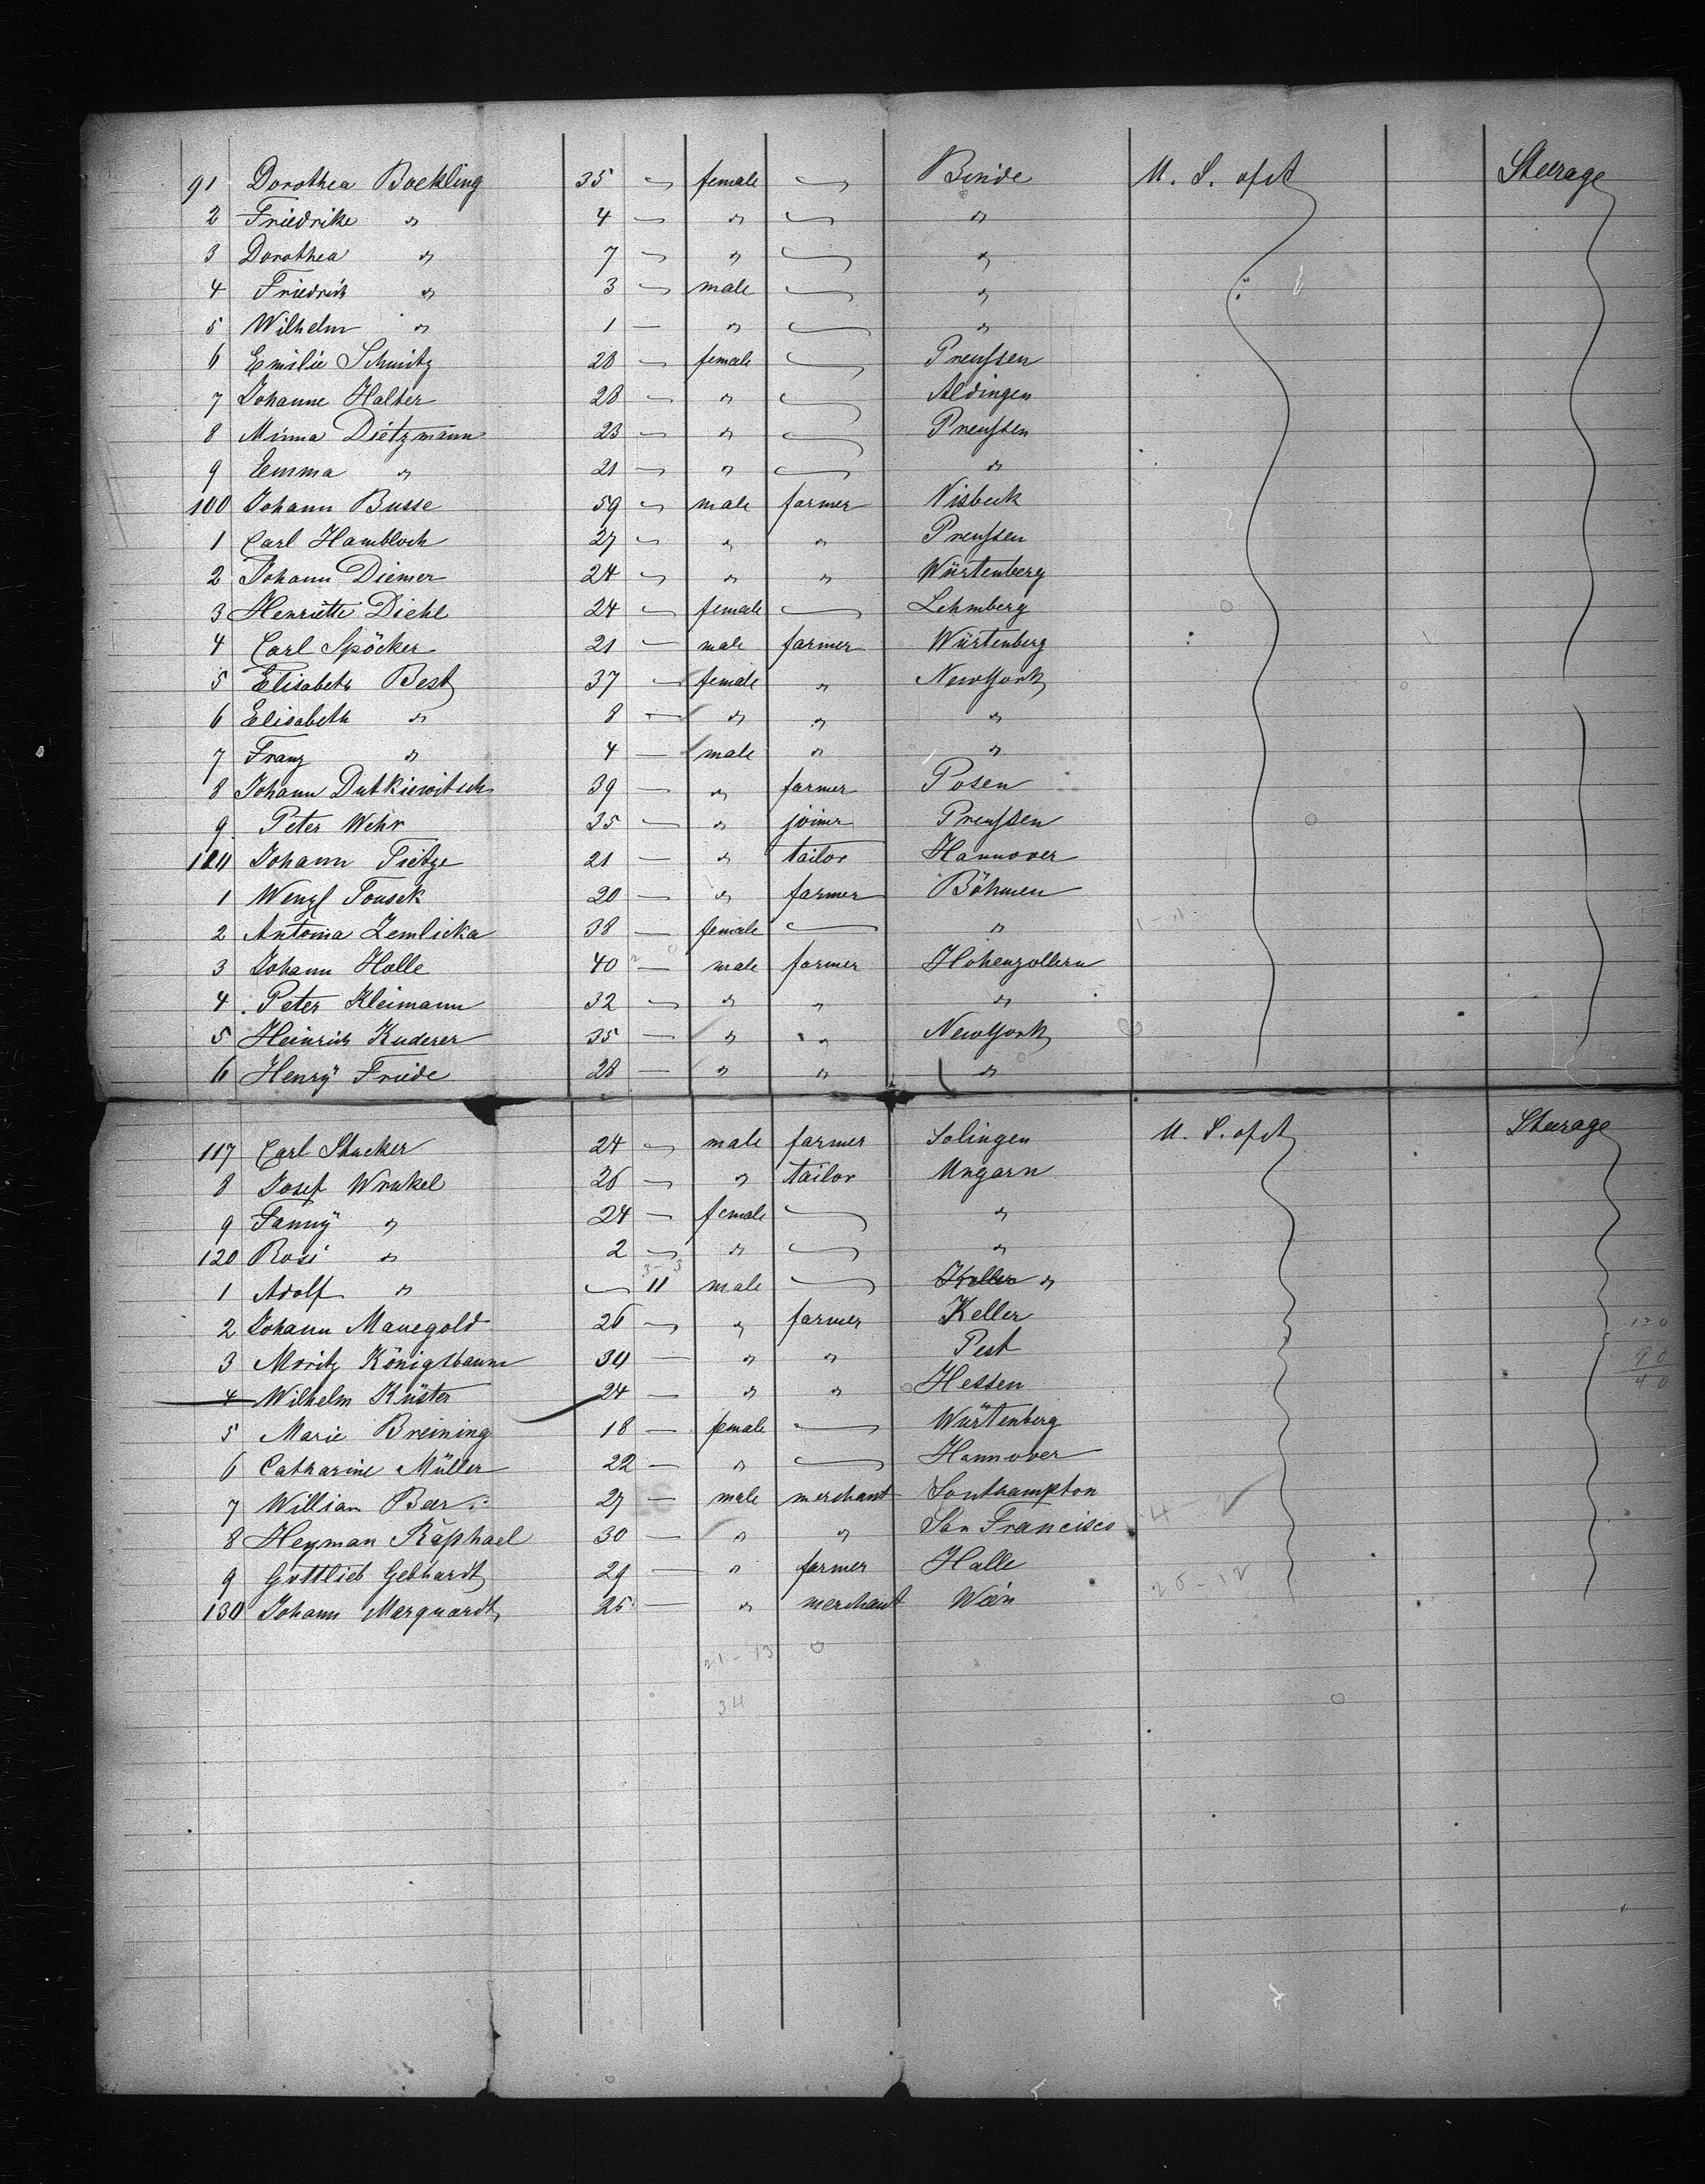 91 Dorothea Boekling 35 — female — Binde U. S. of A Steerage
2 Friedrike " 4 — " — "
3 Dorothea " 7 — " — "
4 Friedrich " 3 — male — "
5 Wilhelm " 1 — " — "
6 Emilie Schmitz 28 — female — Preußen
7 Johanne Halter 28 — " — Aldingen
8 Minna Dietzmann 23 — " — Preußen
9 Emma " 21 — " — "
100 Johann Busse 59 — male farmer Visbeck
1 Carl Hambloch 27 — " " Preußen
2 Johann Diemer 24 — " " Würtenberg
3 Henriette Diehl 24 — female — Lehmberg
4 Carl Spöcker 21 — male farmer Würtenberg
5 Elisabeth Best 37 — female " New York
6 Elisabeth " 8 — " " "
7 Franz " 4 — male " "
8 Johann Dutkiewitsch 39 — " farmer Posen
9 Peter Wehr 35 — " joiner Preußen
110 Johann Tietze 21 — " tailor Hannover
1 Wenzl Tousek 20 — " farmer Böhmen
2 Antonia Zemlicka 38 — female — "
3 Johann Holle 40 — male farmer Hohenzollern
4 Peter Kleimann 32 — " " "
5 Heinrich Kuderer 35 — " " New York
6 Henry Friede 28 — " " "
117 Carl Stucker 24 — male farmer Solingen U. S. of A Steerage
8 Josef Winkel 26 — " tailor Ungarn
9 Fanny " 24 — female — "
120 Rosi " 2 — " — "
1 Adolf " — 11 male — Keller "
2 Johann Manegold 26 — " farmer Keller
3 Moritz Königsbaum 30 — " " Pest
4 Wilhelm Küster 24 — " " Hessen
5 Marie Breining 18 — female — Würtenberg
6 Catharine Müller 22 — " — Hannover
7 William Beer 27 — male merchant Southampton
8 Heyman Raphael 30 — " " San Francisco
9 Gottlieb Gebhardt 29 — " farmer Halle
130 Johann Marquardt 25 — " merchant Wien
21-13 0
34